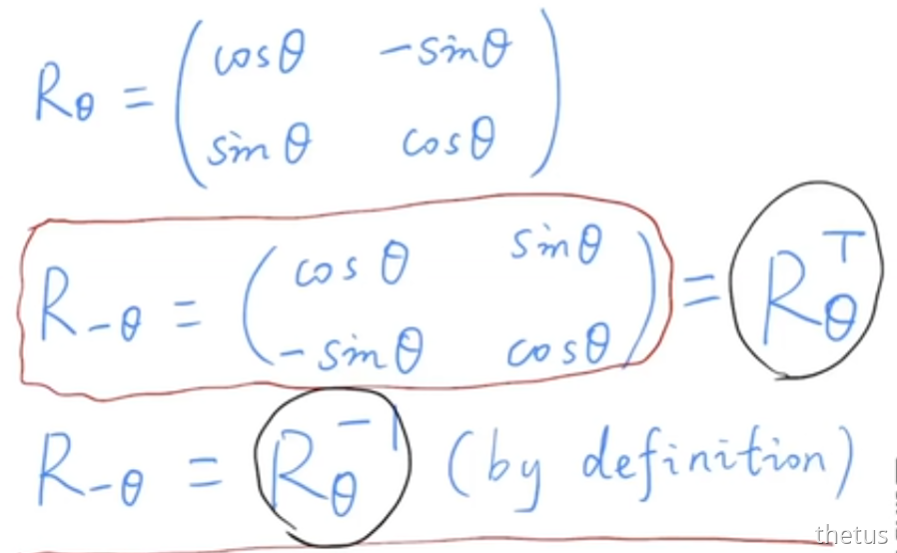 R_θ = ( cosθ  -sinθ
sinθ  cosθ )
R_{-θ} = ( cosθ  sinθ
-sinθ  cosθ ) = R_θ^T
R_{-θ} = R_θ^{-1} (by definition)
thetus